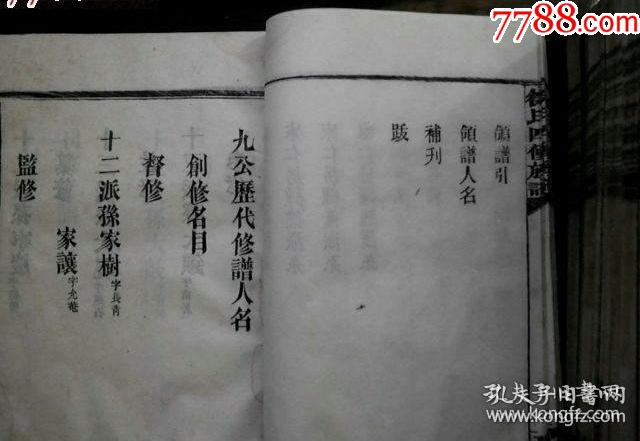 7788.com
7788.com
領譜引
領譜人名
補刊
跋
九公歷代修譜人名
創修名目
督修
十二派孫家樹字長青
家讓字允菴
監修
孔夫子旧書网
www.kongfz.com